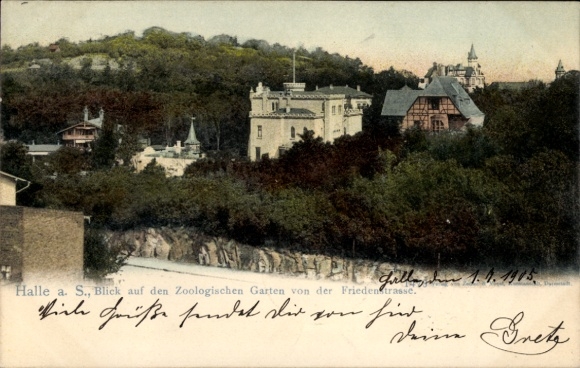 Halle, den 1.4.1905
Halle a. S., Blick auf den Zoologischen Garten von der Friedenstrasse.
Viele Grüße sendet Dir von hier
deine Greta